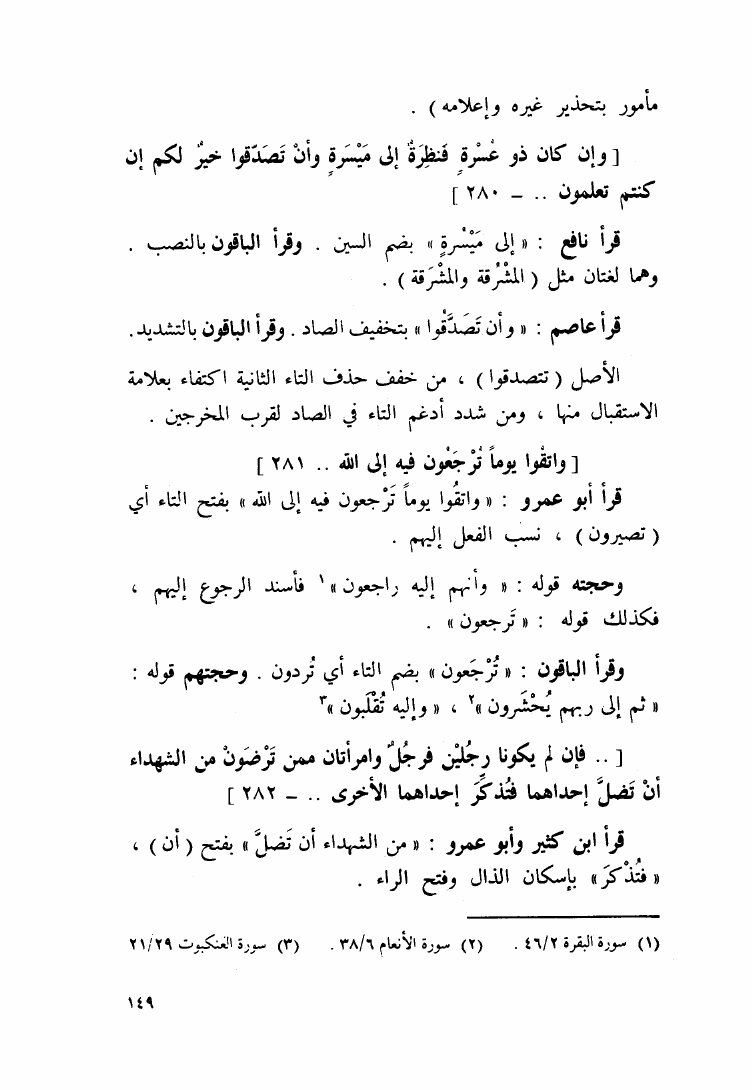 مأمور بتحذير غيره وإعلامه ) .
[ وإن كان ذو عُسْرةٍ فَنظِرَةٌ إلى مَيْسَرةٍ وأنْ تَصَدّقوا خيرٌ لكم إن
كنتم تعلمون .. – ٢٨٠ ]
قرأ نافع : « إلى مَيْسُرةٍ » بضم السين . وقرأ الباقون بالنصب .
وهما لغتان مثل ( المشْرُقة والمشْرَقة ) .
قرأ عاصم : « وأن تَصَدَّقُوا » بتخفيف الصاد . وقرأ الباقون بالتشديد .
الأصل ( تتصدقوا ) ، من خفف حذف التاء الثانية اكتفاء بعلامة
الاستقبال منها ، ومن شدد أدغم التاء في الصاد لقرب المخرجين .
[ واتقُوا يوماً تُرْجَعُون فيه إلى الله .. ٢٨١ ]
قرأ أبو عمرو : « واتقُوا يوماً تَرْجعون فيه إلى الله » بفتح التاء أي
( تصيرون ) ، نسب الفعل إليهم .
وحجته قوله : « وأنهم إليه راجعون »١ فأسند الرجوع إليهم ،
فكذلك قوله : « تَرجعون » .
وقرأ الباقون : « تُرْجَعون » بضم التاء أي تُردون . وحجتهم قوله :
« ثم إلى ربهم يُحْشَرون »٢ ، « وإليه تُقْلَبون »٣
[ .. فإن لم يكونا رجُليْن فرجُلٌ وامرأتان ممن تَرْضَونْ من الشهداء
أنْ تَضلَّ إحداهما فتُذكِّرَ إحداهما الأخرى .. – ٢٨٢ ]
قرأ ابن كثير وأبو عمرو : « من الشهداء أن تَضلَّ » بفتح ( أن ) ،
« فتُذْكرَ » بإسكان الذال وفتح الراء .
(١) سورة البقرة ٤٦/٢ . (٢) سورة الأنعام ٣٨/٦ . (٣) سورة العنكبوت ٢١/٢٩
١٤٩